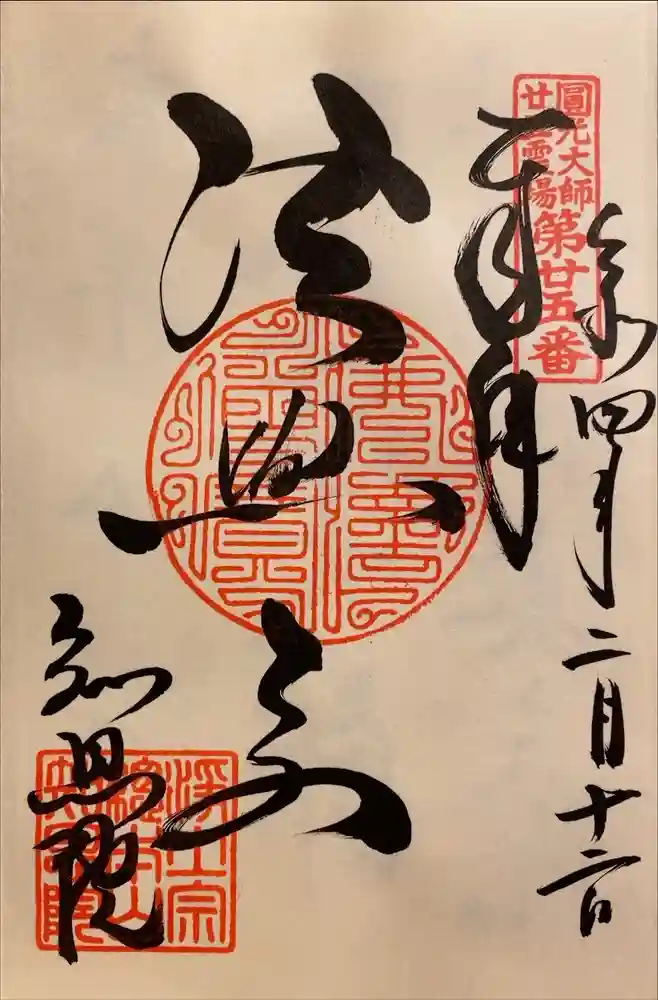 圓光大師
廿五霊場
第廿五番
令和四年二月十二日
奉拝
法然上人
知恩院
淨土宗
總本山
知恩院